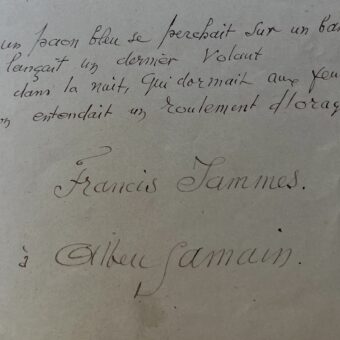 un paon bleu se perchait sur un ban
lançait un dernier volant
dans la nuit, qui dormait aux feu
on entendait un roulement d'orag
Francis Jammes.
à Albert Samain.